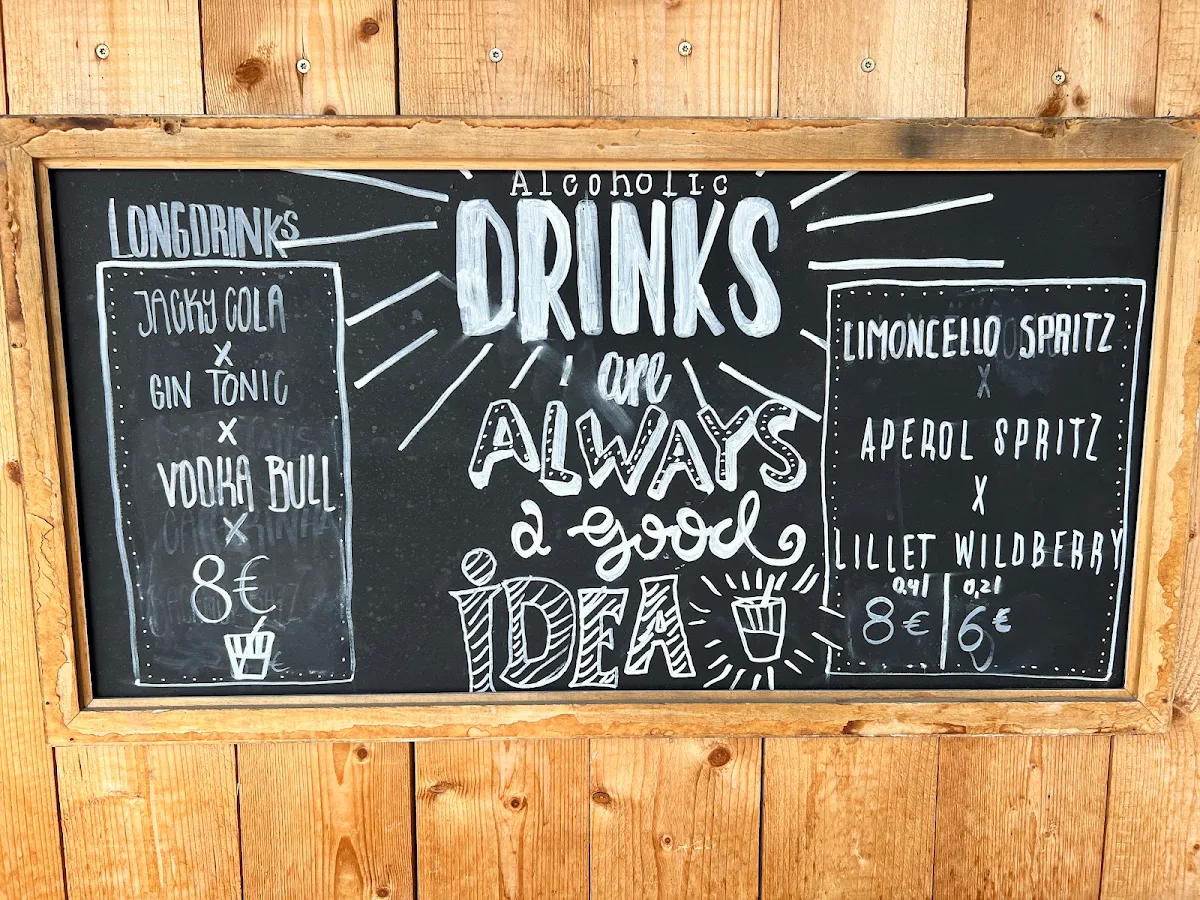 LONGDRINKS
JACKY COLA
X
GIN TONIC
X
VODKA BULL
X
8€
Alcoholic
DRINKS
are
ALWAYS
a good
iDEA
LIMONCELLO SPRITZ
X
APEROL SPRITZ
X
LILLET WILDBERRY
0,4l 0,2l
8€ 6€